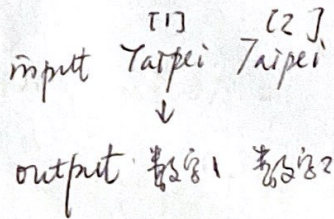 [1] [2]
input Taipei Taipei
↓
output 數字1 數字2